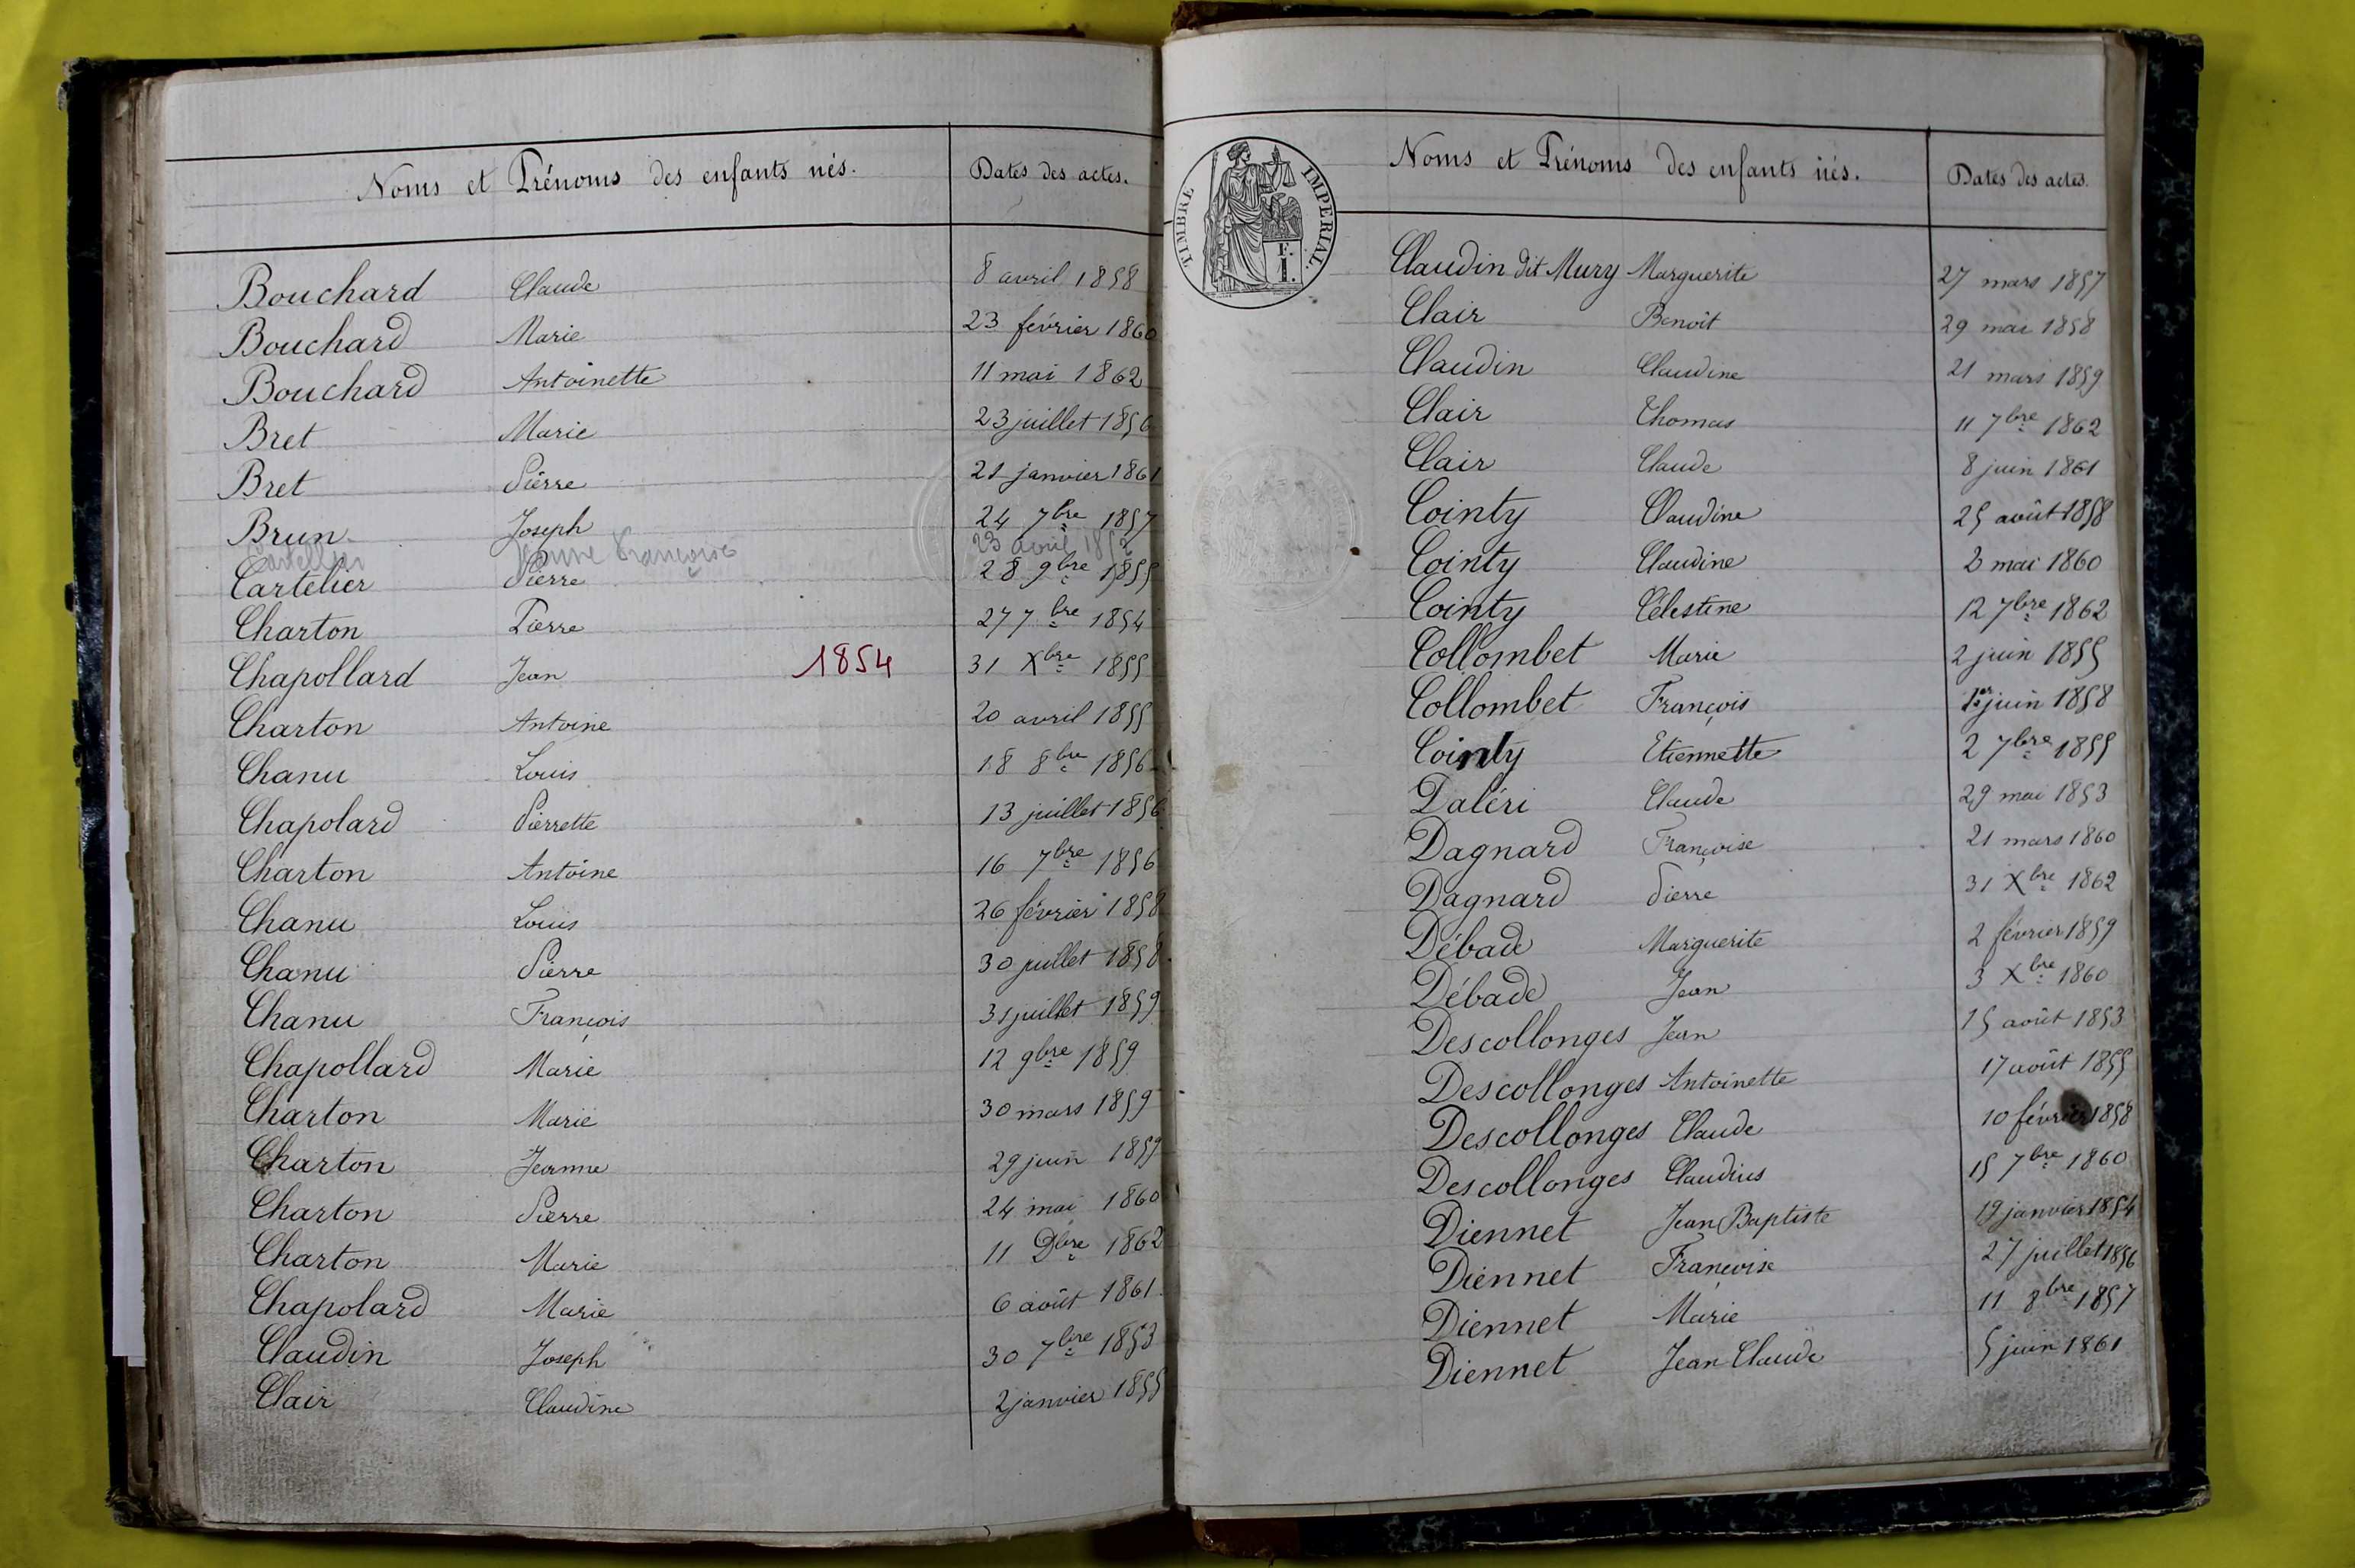 Noms et Prénoms des enfants nés. Dates des actes.
Bouchard Claude 8 avril 1858
Bouchard Marie 23 février 1860
Bouchard Antoinette 11 mai 1862
Bret Marie 23 juillet 1856
Bret Pierre 21 janvier 1861
Brun Joseph 24 7bre 1857
Cartellier Jeanne Françoise 23 avril 1852
Cartelier Pierre 28 9bre 1855
Charton Pierre 27 7bre 1854
Chapollard Jean 1854 31 Xbre 1855
Charton Antoine 20 avril 1855
Chanu Louis 18 8bre 1856
Chapolard Pierrette 13 juillet 1856
Charton Antoine 16 7bre 1856
Chanu Louis 26 février 1858
Chanu Pierre 30 juillet 1858
Chanu François 31 juillet 1859
Chapollard Marie 12 9bre 1859
Charton Marie 30 mars 1859
Charton Jeanne 29 juin 1859
Charton Pierre 24 mai 1860
Charton Marie 11 9bre 1862
Chapolard Marie 6 août 1861
Claudin Joseph 30 7bre 1853
Clair Claudine 2 janvier 1855
TIMBRE IMPERIAL.
F.
I.
Noms et Prénoms des enfants nés. Dates des actes.
Claudin dit Mury Marguerite 27 mars 1857
Clair Benoît 29 mai 1858
Claudin Claudine 21 mars 1859
Clair Thomas 11 7bre 1862
Clair Claude 8 juin 1861
Cointy Claudine 25 août 1858
Cointy Claudine 2 mai 1860
Cointy Célestine 12 7bre 1862
Collombet Marie 2 juin 1855
Collombet François 1er juin 1858
Cointy Etiennette 2 7bre 1855
Daléri Claude 29 mai 1853
Dagnard Françoise 21 mars 1860
Dagnard Pierre 31 Xbre 1862
Débade Marguerite 2 février 1859
Débade Jean 3 Xbre 1860
Descollonges Jean 15 août 1853
Descollonges Antoinette 17 août 1855
Descollonges Claude 10 février 1858
Descollonges Claudius 15 7bre 1860
Diennet Jean Baptiste 19 janvier 1854
Diennet Françoise 27 juillet 1856
Diennet Marie 11 8bre 1857
Diennet Jean Claude 5 juin 1861